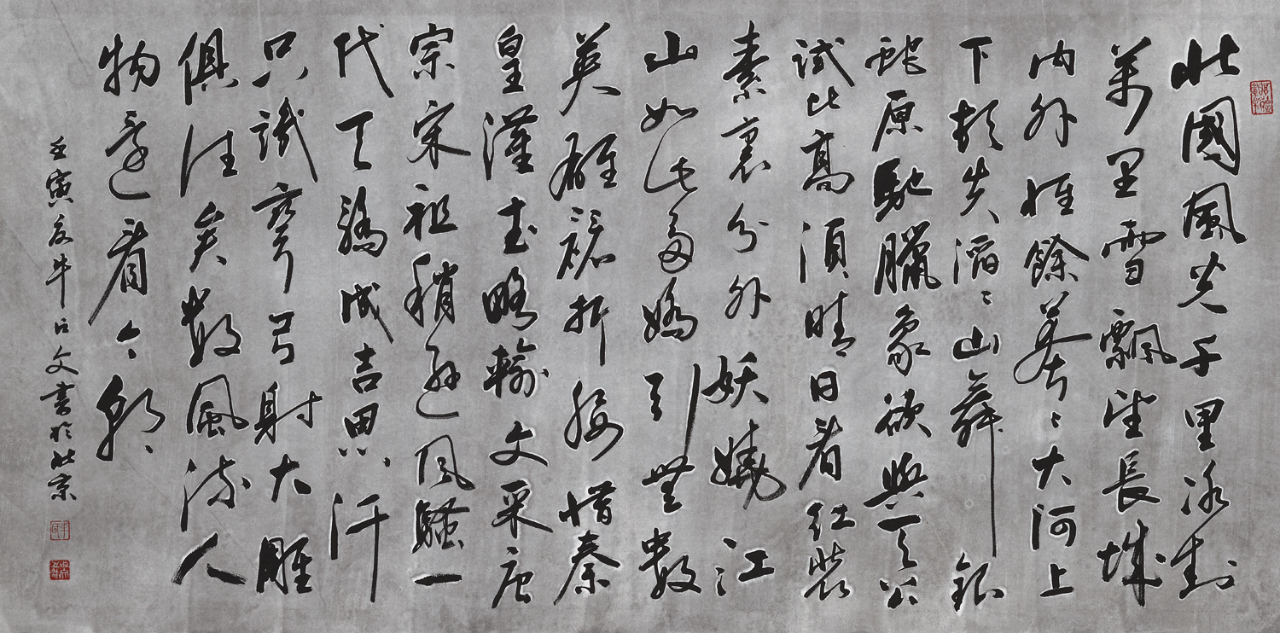 北國風光千里冰封
萬里雪飄望長城
內外惟餘莽〻大河上
下頓失滔〻山舞銀
蛇原馳臘象欲與天公
試比高須晴日看紅裝
素裹分外妖嬈江
山如此多嬌引無數
英雄競折腰惜秦
皇漢武略輸文采唐
宗宋祖稍遜风騷一
代天驕成吉思汗
只識彎弓射大雕
俱往矣數風流人
物還看今朝
壬寅牛文書於北京